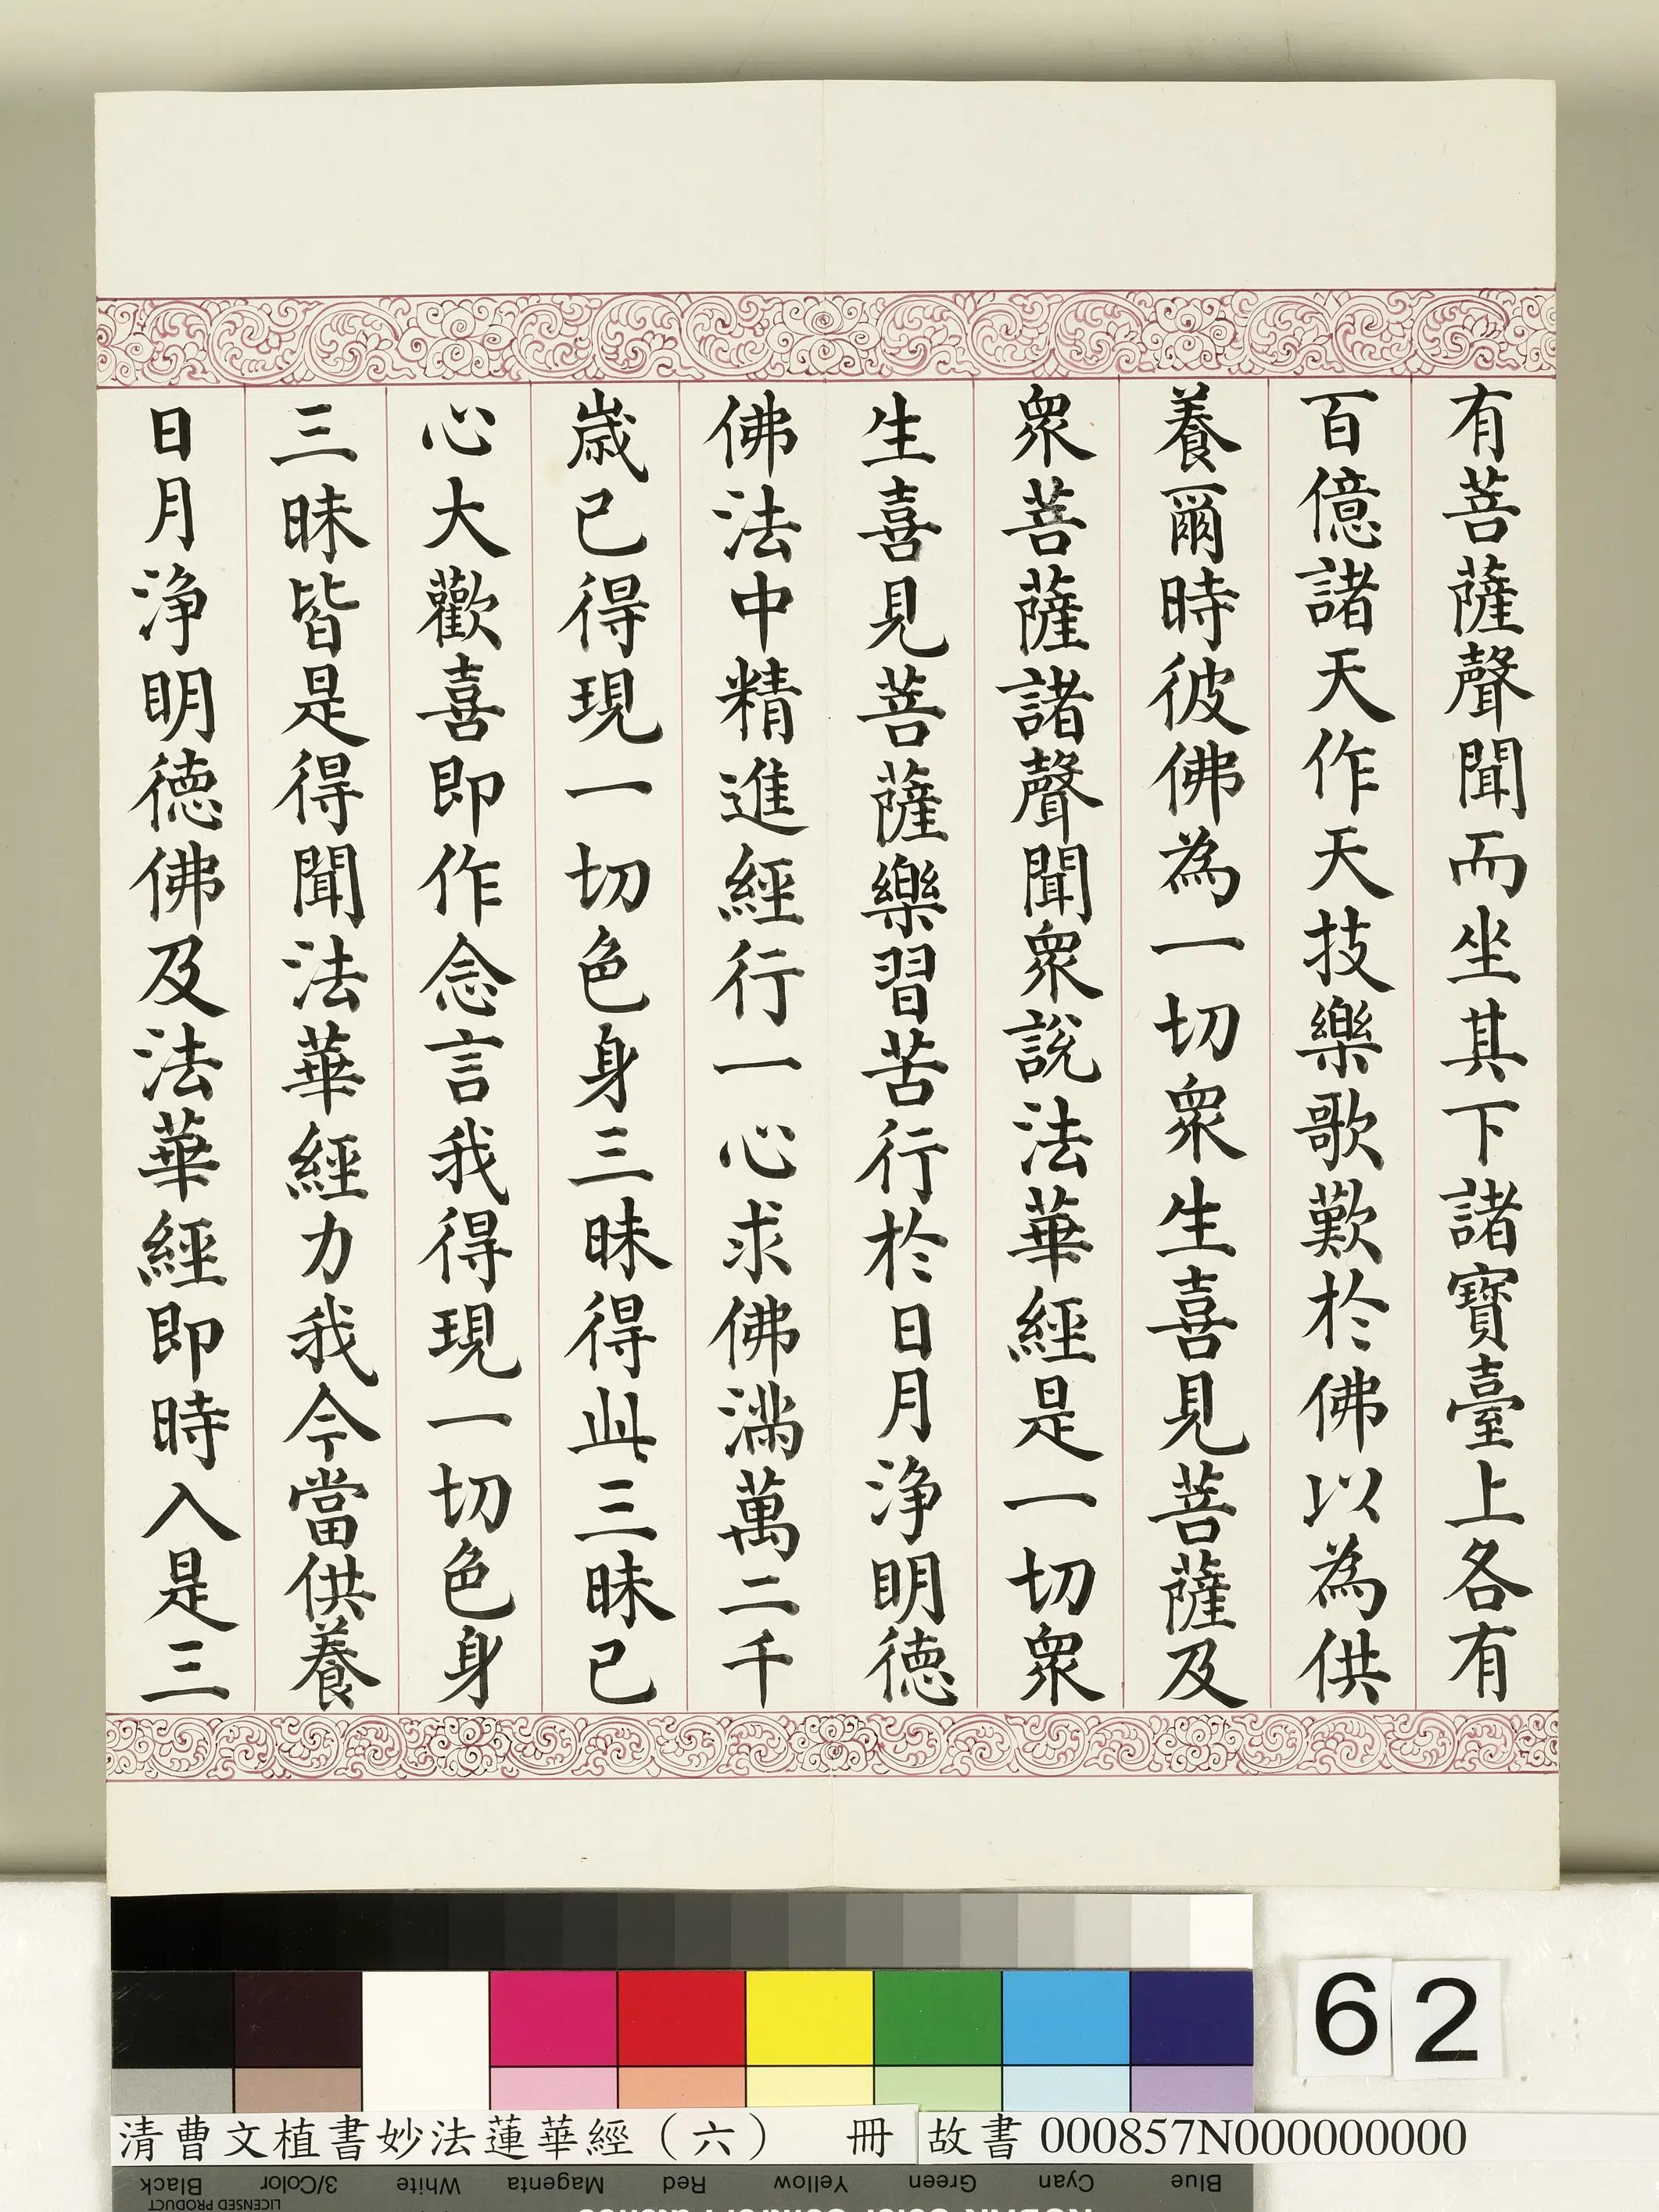 有菩薩聲聞而坐其下諸寶臺上各有
百億諸天作天技樂歌歎於佛以為供
養爾時彼佛為一切衆生喜見菩薩及
衆菩薩諸聲聞衆說法華經是一切衆
生喜見菩薩樂習苦行於日月淨明德
佛法中精進經行一心求佛滿萬二千
歲已得現一切色身三昧得此三昧已
心大歡喜即作念言我得現一切色身
三昧皆是得聞法華經力我今當供養
日月淨明德佛及法華經即時入是三
62
清曹文植書妙法蓮華經（六） 冊 故書 000857N000000000
Black 3/Color White Magenta Red Yellow Green Cyan Blue
LICENSED PRODUCT